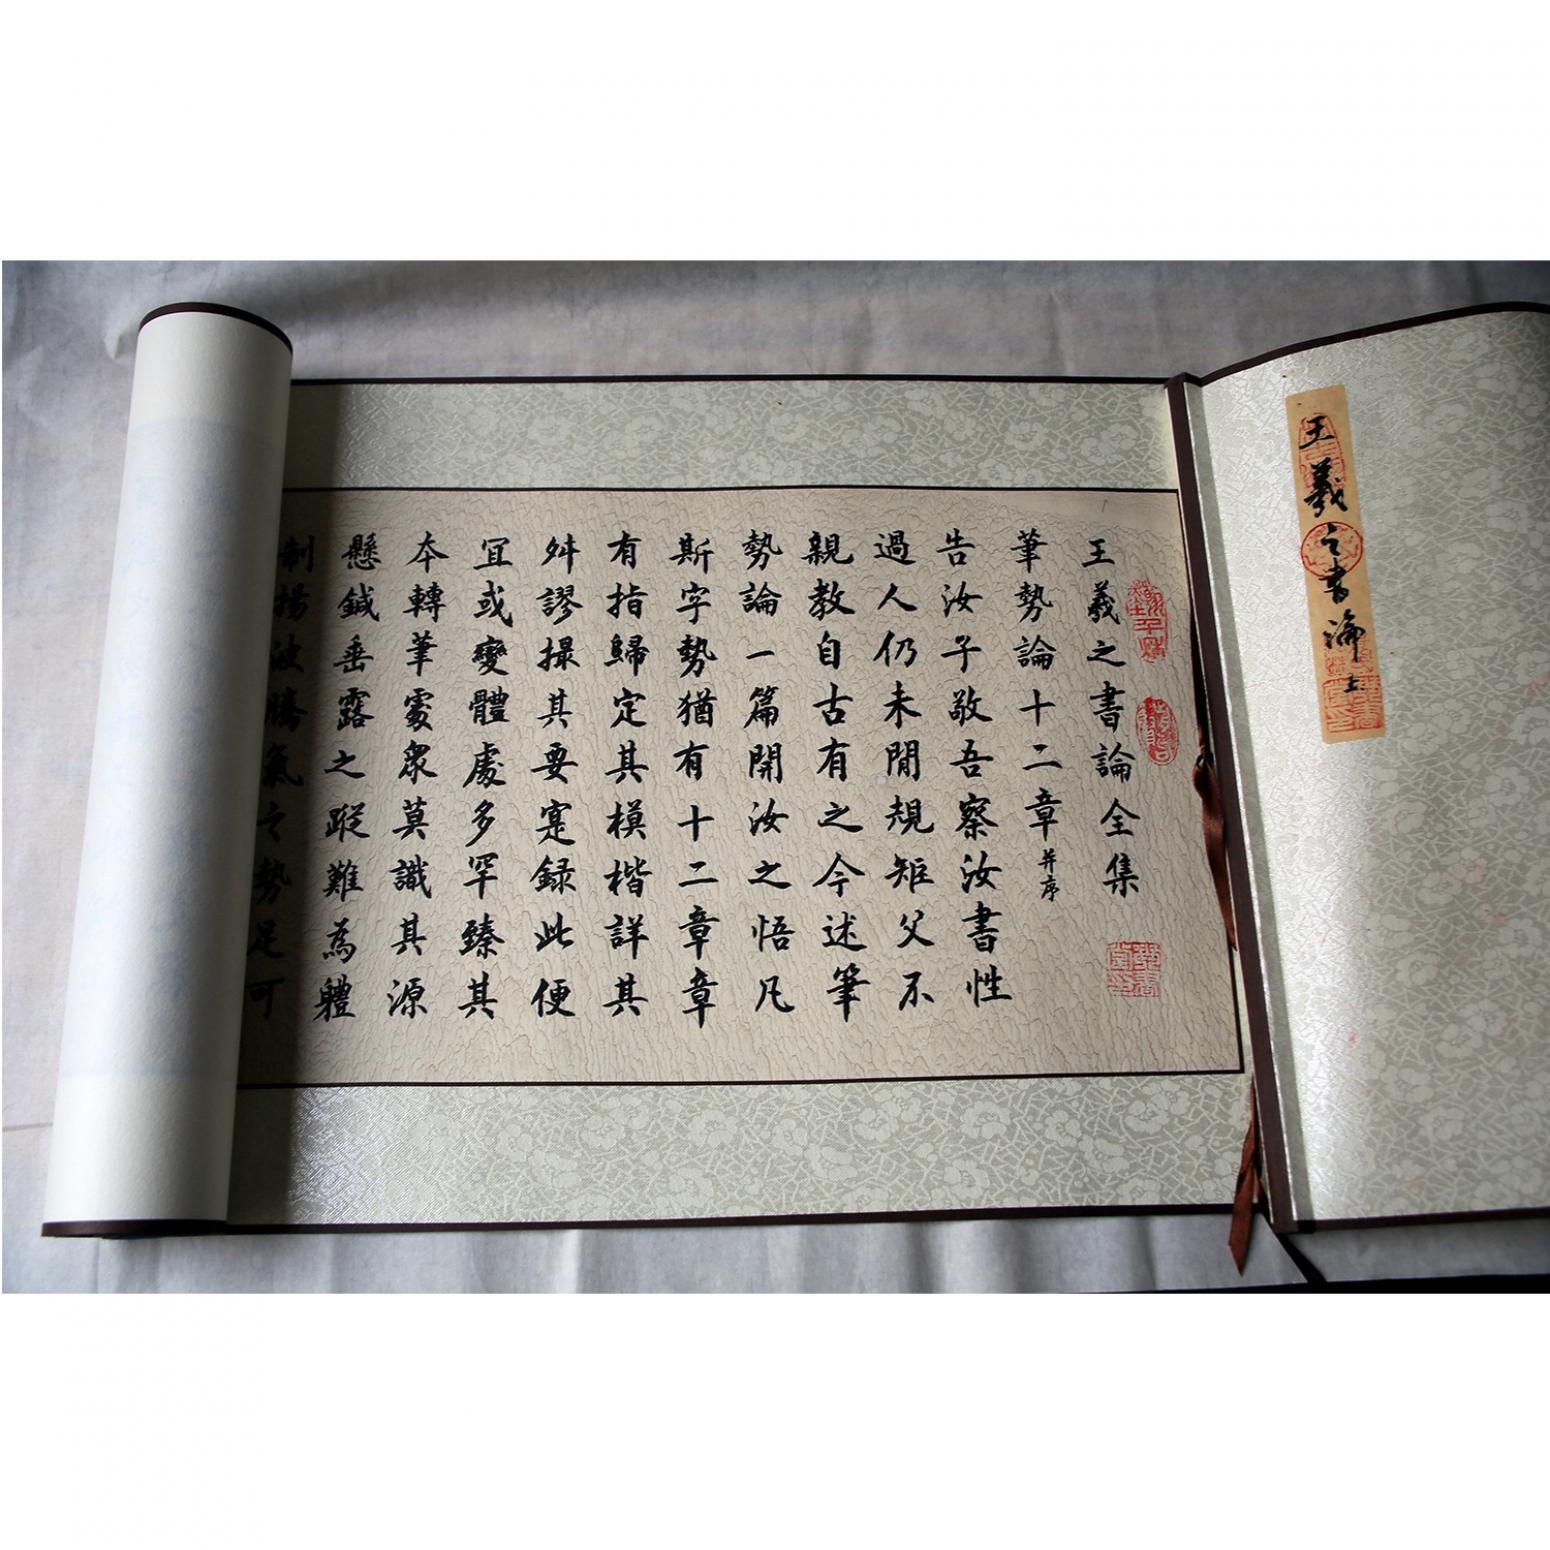 王羲之書論上
王羲之書論全集
筆勢論十二章并序
告汝子敬吾察汝書性
過人仍未閒規矩父不
親教自古有之今述筆
勢論一篇開汝之悟凡
斯字勢猶有十二章章
有指歸定其模楷詳其
舛謬撮其要寔録此便
冝或變體處多罕臻其
本轉筆處衆莫識其源
懸鍼垂露之蹤難為體
制揚波騰氣之勢足可